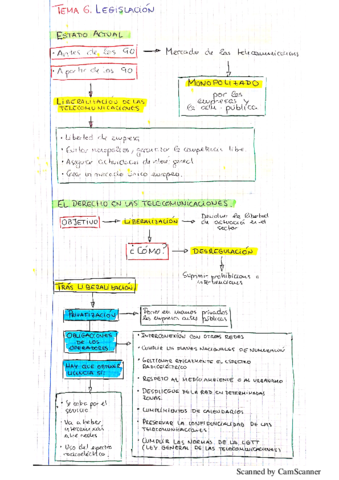 TEMA 6. LEGISLACIÓN
ESTADO ACTUAL
· Antes de los 90 → Mercado de las telecomunicaciones
· A partir de los 90
MONOPOLIZADO
por las
empresas y
la adm. pública
LIBERALIZACIÓN DE LAS
TELECOMUNICACIONES
· Libertad de empresa
· Evitar monopolios, garantizar la competencia libre.
· Asegurar actuación de interés general.
· Crear un mercado único europeo.
EL DERECHO EN LAS TELECOMUNICACIONES.
OBJETIVO → LIBERALIZACIÓN → Devolver la libertad
de actuación en el
sector
¿CÓMO? → DESREGULACIÓN
Suprimir prohibiciones o
intervenciones
TRAS LIBERALIZACIÓN
PRIVATIZACIÓN → Poner en manos privadas
las empresas antes públicas
OBLIGACIONES
DE LOS
OPERADORES
HAY QUE OBTENER
LICENCIA SI:
· Se cobra por el
servicio
· Va a haber
interconexión
entre redes
· Uso del espectro
radioeléctrico.
· INTERCONEXIÓN CON OTRAS REDES
· CUMPLIR LOS PLANES NACIONALES DE NUMERACIÓN
· GESTIONAR EFICAZMENTE EL ESPECTRO
RADIOELÉCTRICO
· RESPETO AL MEDIO AMBIENTE O AL URBANISMO
· DESPLIEGUE DE LA RED EN DETERMINADAS
ZONAS
· CUMPLIMIENTOS DE CALENDARIOS
· PRESERVAR LA CONFIDENCIALIDAD DE LAS
TELECOMUNICACIONES
· CUMPLIR LAS NORMAS DE LA LGTT
(LEY GENERAL DE LAS TELECOMUNICACIONES)
Scanned by CamScanner